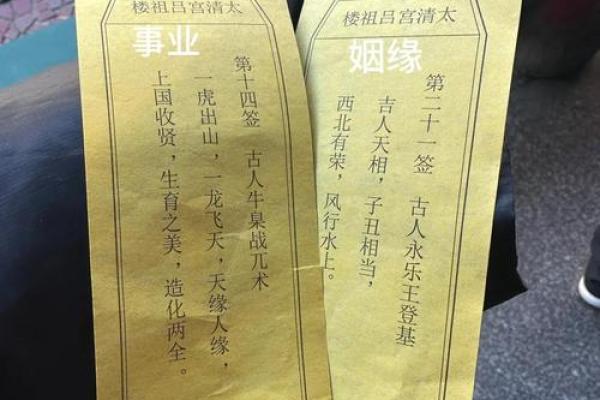 太清宫吕祖楼
事业
第十四签 古人牛臬战兀术
一虎出山，一龙飞天，天缘人缘，
上国收贤，生育之美，造化两全。
太清宫吕祖楼
姻缘
第二十一签 古人永乐王登基
吉人天相，子丑相当，
西北有荣，风行水上。